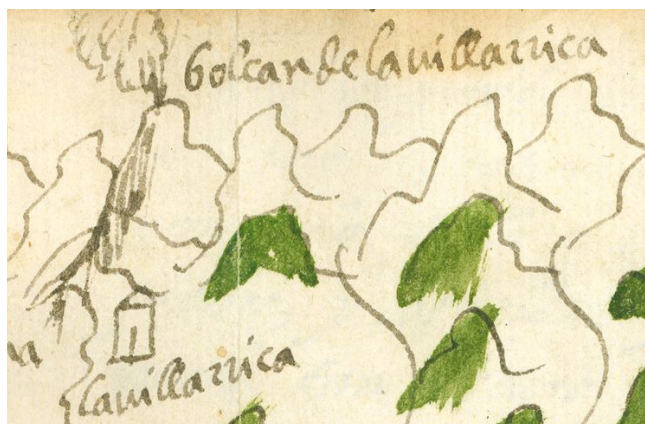 bolcan de la uillarrica
la uillarrica